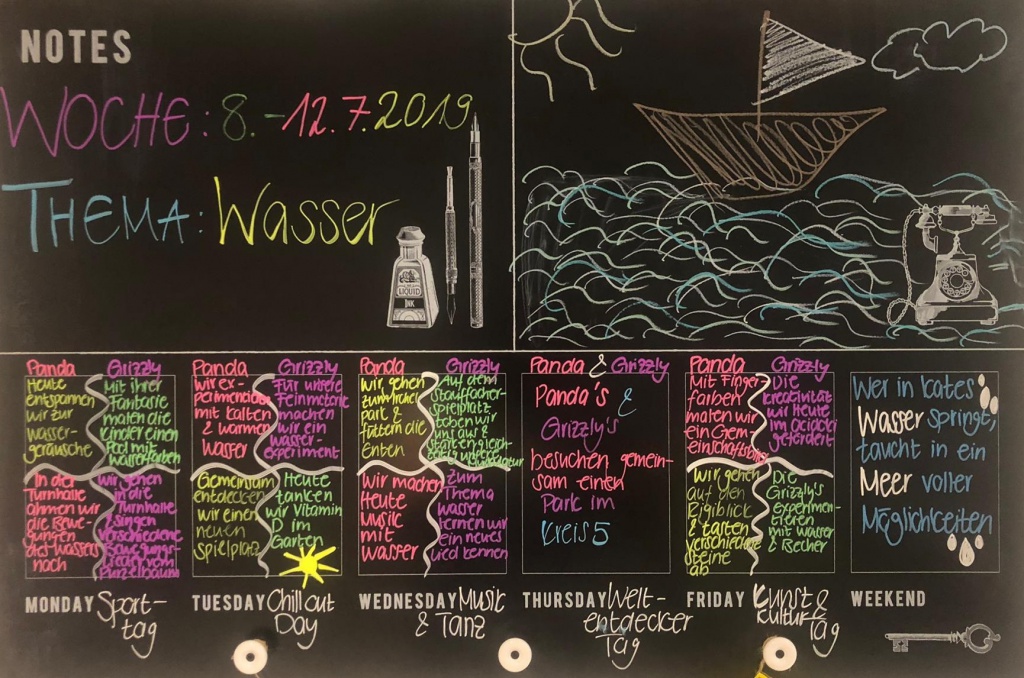 NOTES
WOCHE: 8.-12.7.2019
THEMA: Wasser
LIQUID
INK
Panda Grizzly
Heute
entspannen
wir zur
wasser-
geräusche
Mit ihrer
Fantasie
malen die
Kinder einen
Pool mit
Wasserfarben
In der
Turnhalle
ahmen wir
die Bewe-
gungen
des Wassers
nach
wir gehen
in die
Turnhalle
& singen
verschiedene
Bewegungs-
lieder vom
Purzelbaum
MONDAY Sport-
tag
Panda Grizzly
wir ex-
perimentier
mit kalten
& warmen
wasser
Für unsere
Feinmotorik
machen
wir ein
wasser-
experiment
Gemeinsam
entdecken
wir einen
neuen
spielplatz
Heute
tanken
wir Vitamin
D im
Garten
TUESDAY Chill out
Day
Panda Grizzly
wir gehen
zum
park &
füttern die
Enten
Auf dem
Stauffacher-
spielplatz
toben wir
uns aus &
Wir machen
Heute
Musik
mit
Wasser
Zum
Thema
wasser
lernen wir
ein neues
Lied kennen
WEDNESDAY Music
& Tanz
Panda & Grizzly
Panda's &
Grizzly's
besuchen gemein-
sam einen
Park im
Kreis 5
THURSDAY Welt-
entdecker
Tag
Panda Grizzly
Mit Finger-
farben
malen wir
ein Gem
Die
kreativität
wird Heute
im
gefördert
Wir gehen
auf den
Rigiblick
& tasten
verschiedene
Steine
ab
Die
Grizzly's
experimen-
tieren
mit wasser
& Becher
FRIDAY Kunst &
Kultur
Tag
Wer in kaltes
Wasser springt,
taucht in ein
Meer voller
Möglichkeiten
WEEKEND